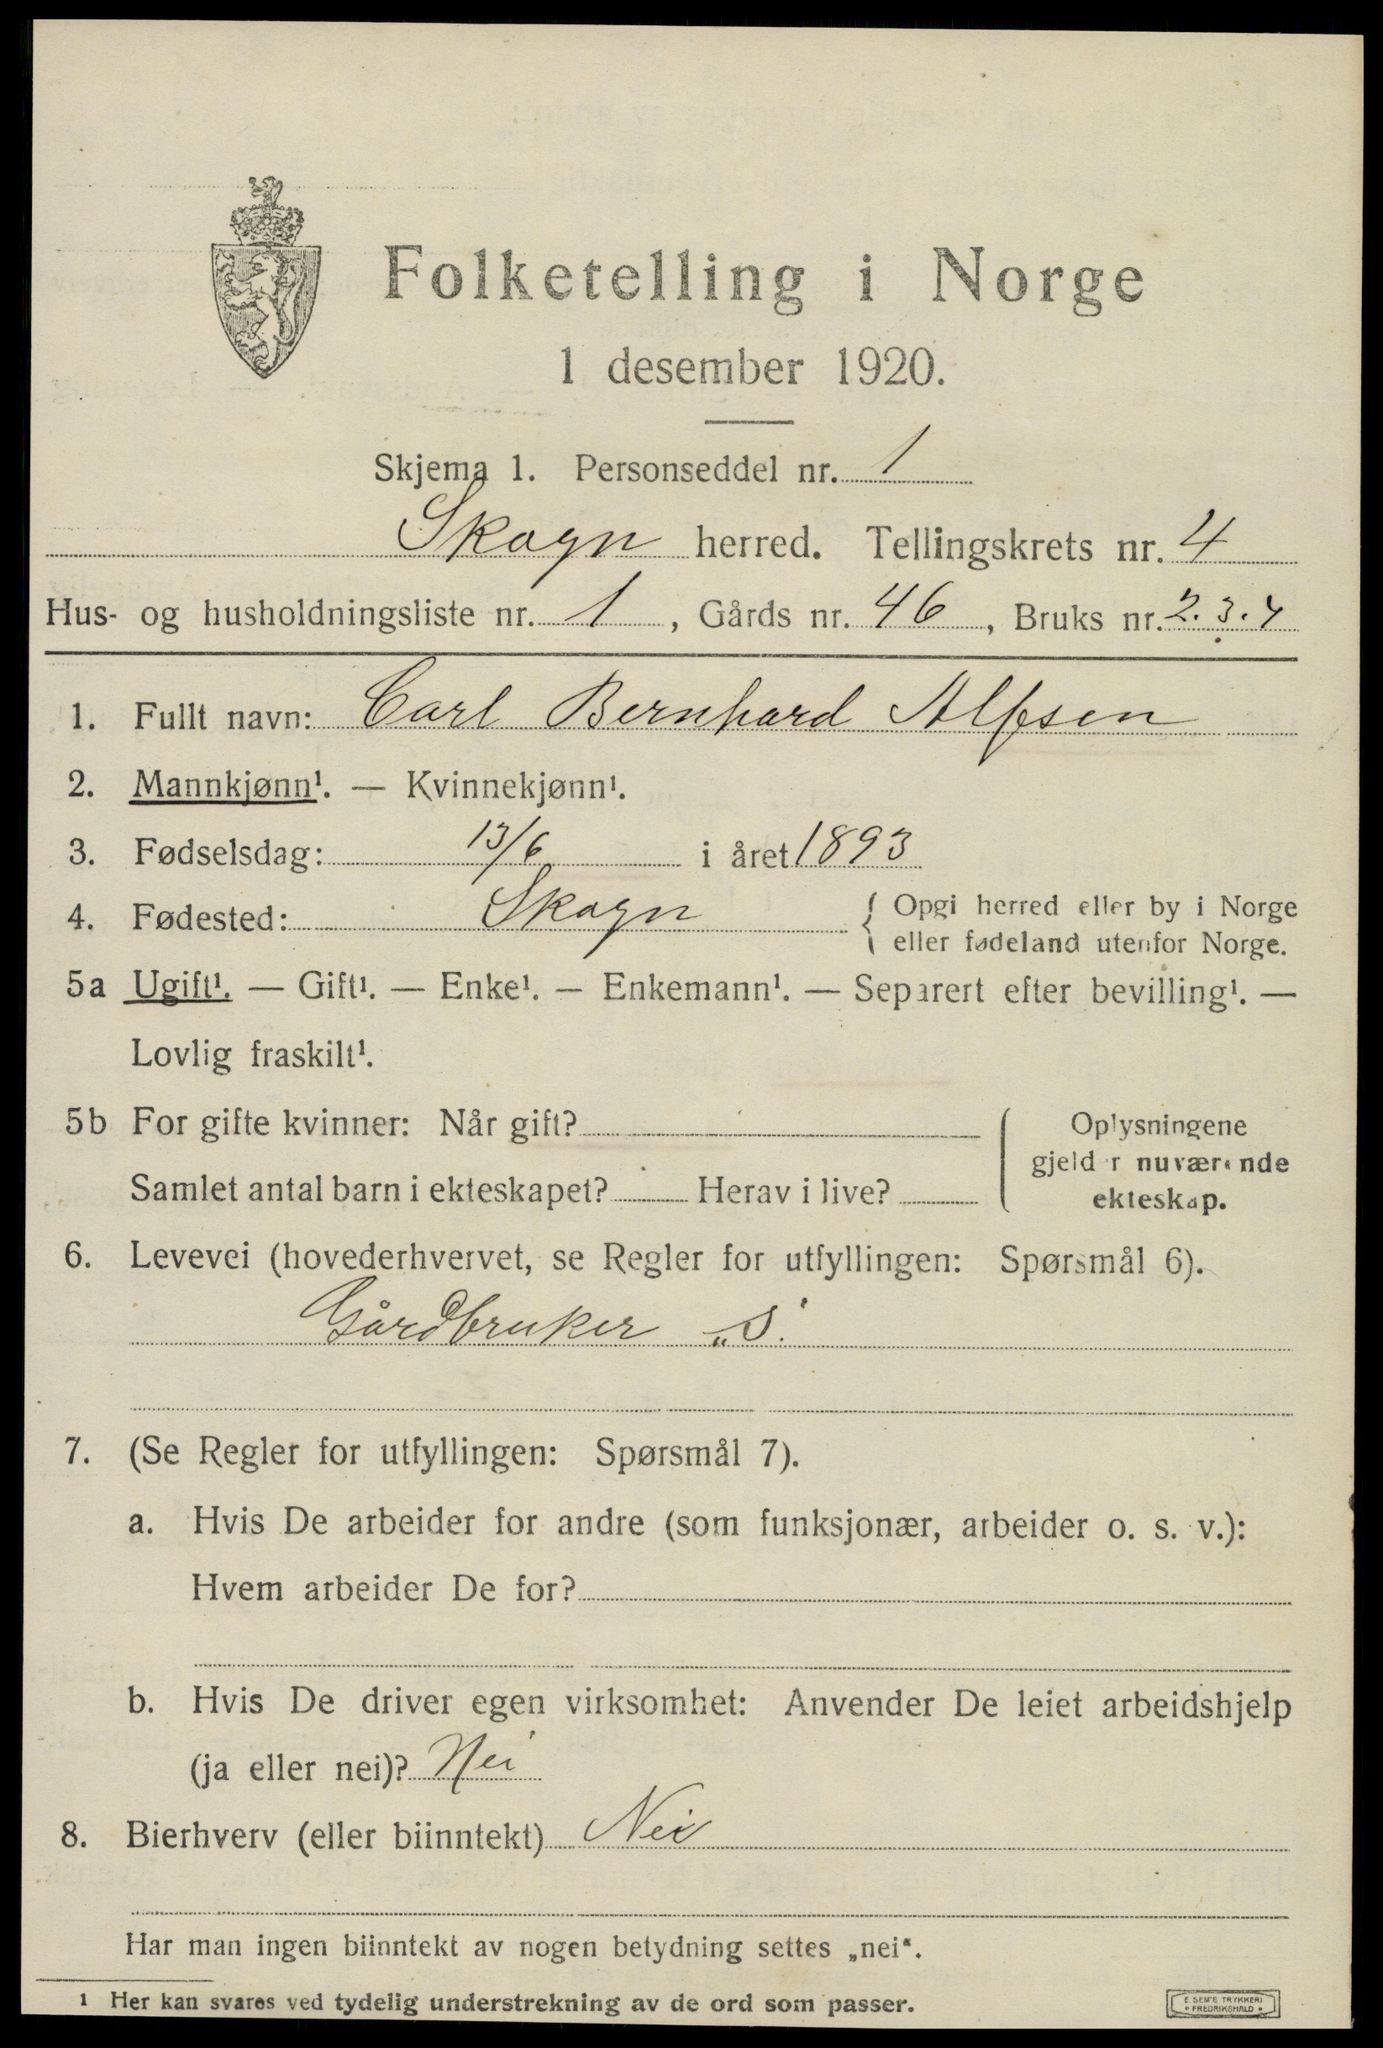 Folketelling i Norge
1 desember 1920.
Skjema 1. Personseddel nr. 1
Skogn herred. Tellingskrets nr. 4
Hus- og husholdningsliste nr. 1, Gårds nr. 46, Bruks nr. 2.3.4
1. Fullt navn: Carl Bernhard Alfsen
2. Mannkjønn¹. — Kvinnekjønn¹.
3. Fødselsdag: 13/6 i året 1893
4. Fødested: Skogn { Opgi herred eller by i Norge
eller fødeland utenfor Norge.
5a Ugift¹. — Gift¹. — Enke¹. — Enkemann¹. — Separert efter bevilling¹. —
Lovlig fraskilt¹.
5b For gifte kvinner: Når gift?
Samlet antal barn i ekteskapet? Herav i live?
Oplysningene
gjelder nuværende
ekteskap.
6. Levevei (hovederhvervet, se Regler for utfyllingen: Spørsmål 6).
Gårdbruker „S.
7. (Se Regler for utfyllingen: Spørsmål 7).
a. Hvis De arbeider for andre (som funksjonær, arbeider o. s. v.):
Hvem arbeider De for?
b. Hvis De driver egen virksomhet: Anvender De leiet arbeidshjelp
(ja eller nei)? Nei
8. Bierhverv (eller biinntekt) Nei
Har man ingen biinntekt av nogen betydning settes „nei“.
1 Her kan svares ved tydelig understrekning av de ord som passer.
E. SEM'S TRYKKERI
FREDRIKSHALD